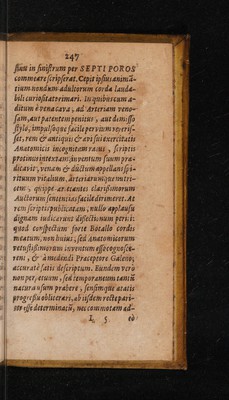 247
siuu in sinistrum per SEPTI POROS
commeare scripserat. Cepit ipsius animã
tium nondum adultorum corda laudabili
curiositate rimari. In quibus cum
aditum è vena cava, ad Arteriam venosam,
aut patentem penitus, aut demisso
stylo, impulsoque facile pervium reperisset,
rem & antiquis & avi sui exercitatis
Anatomicis incognitam ratus, scriptis
protinus intextam inventum suum prædicavit,
venam & ductum appellans spirituum
vitalium, arteriarumque nutricem,
quippe ac tantes clarissimorum
Auctorum sententias facile dirimeret. At
rem scriptis publicatam, nullo applausu
dignam iudicarunt dissectionum periti:
quod conspectum forte Botallo cordis
meatum, non huius, sed Anatomicorum
vetustissimorum inventum esse cognoscerent,
& à medendi Præceptore Galeno,
accuratè satis descriptum. Eundem verò
non perpetuum, sed temporaneum tantũ
natura usum præbere, sensimque ætatis
progressu obliterari, ab iisdem recte pariter
esse determinatũ, nec commotam ad-
L 5 eò